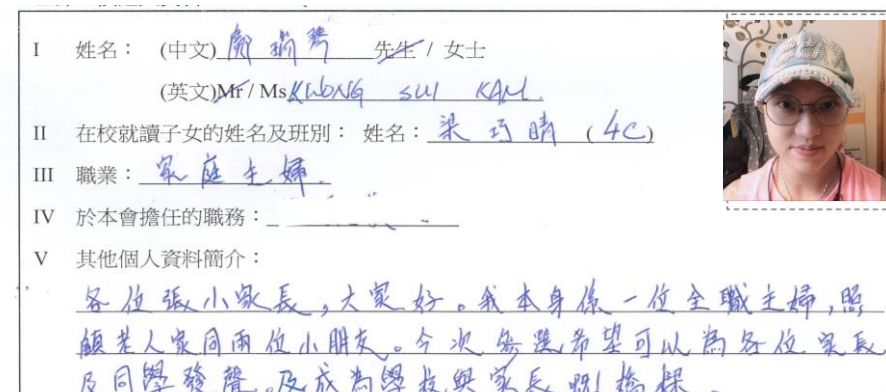 I 姓名： (中文) 鄺瑞琴 先生 / 女士
(英文)Mr / Ms KWONG SUI KAM.
II 在校就讀子女的姓名及班別： 姓名：梁巧晴 (4C)
III 職業：家庭主婦.
IV 於本會擔任的職務：
V 其他個人資料簡介：
各位張小家長，大家好。我本身係一位全職主婦，照
顧老人家同兩位小朋友。今次參選希望可以為各位家長
及同學發聲。及成為學校與家長嘅橋樑。